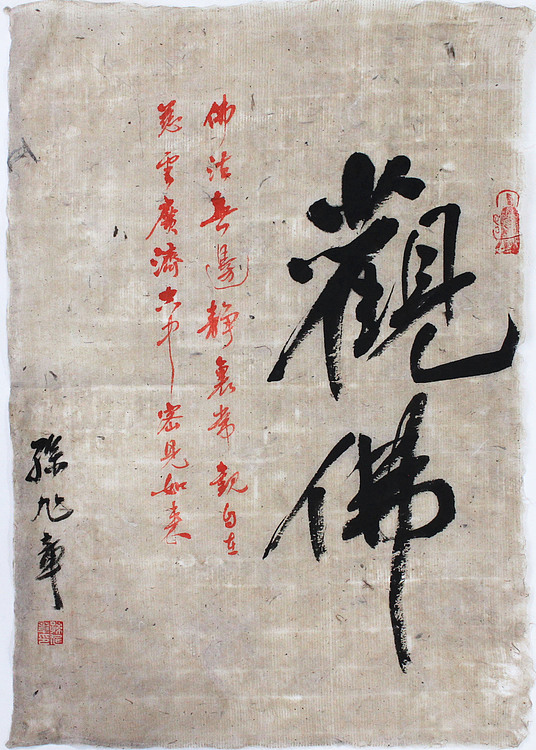 觀佛
佛法無邊靜裏常觀自在
慈雲廣濟空中密見如来
孫旭章